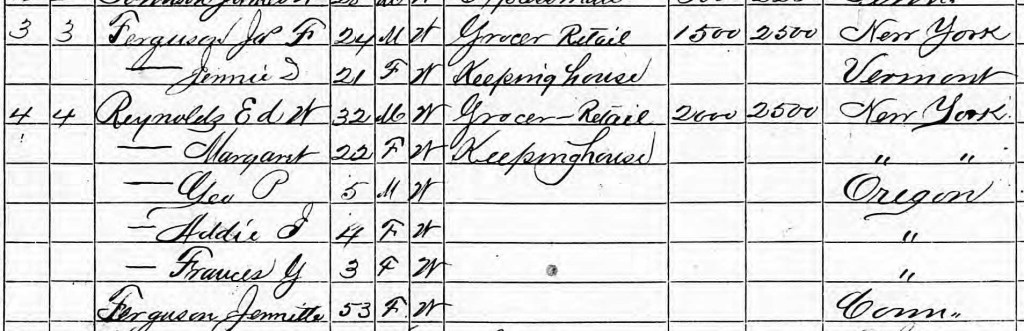 3 3 Ferguson Jas F 24 M W Grocer Retail 1500 2500 New York
— Jennie D 21 F W Keeping house Vermont
4 4 Reynolds Ed W 32 M W Grocer – Retail 2000 2500 New York.
— Margaret 22 F W Keeping house " "
— Geo P 5 M W Oregon
— Addie J 4 F W "
— Frances G 3 F W "
Ferguson Jennette 53 F W Conn.